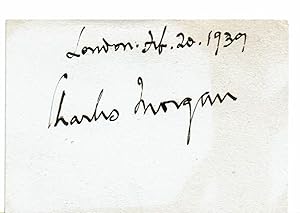 London. Ap. 20. 1939
Charles Morgan